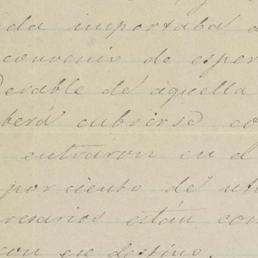 da importaba a
convenio de esper
derable de aquella
berá cubrirse co
entraron en el
por ciento de uti
resarios están con
con su destino.